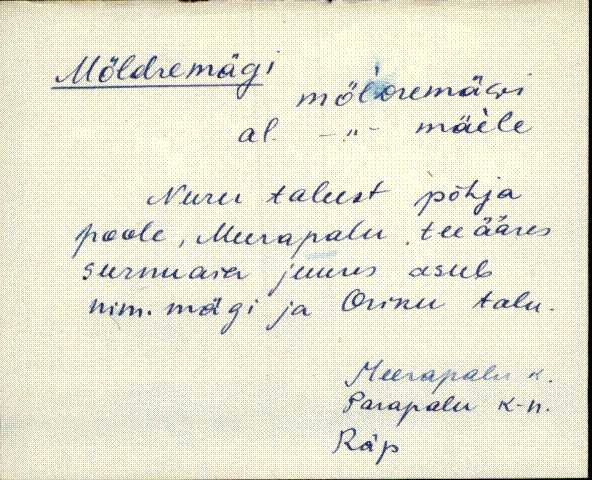 Möldremägi
möldremäġi
al. -„- mäele
Nuru talust põhja
poole, Meerapalu tee ääres
surnuaia juures asub
nim. mägi ja Orinu talu.
Meerapalu k.
Parapalu k-n.
Räp